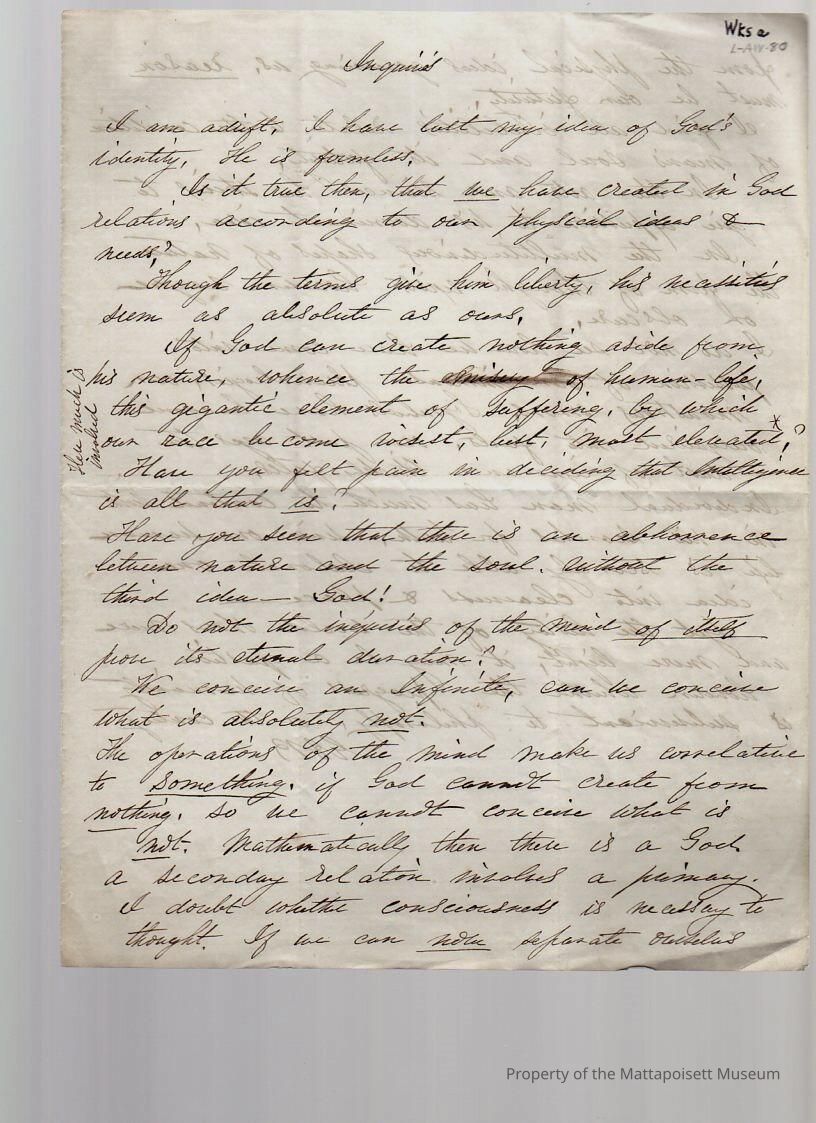 Wks a
L-AW-80
Inquiries
I am adrift, I have lost my idea of God's
identity, He is formless.
Is it true then, that we have created in God
relations, according to our physical ideas &
needs?
Though the terms give him liberty, his necessities
seem as absolute as ours.
If God can create nothing aside from
his nature, whence the of human-life,
this gigantic element of suffering, by which
our race become wisest, best, most elevated*?
Here much is
involved
Have you felt pain in deciding that Intelligence
is all that is?
Have you seen that there is an abhorrence
between nature and the soul. Without the
third idea — God!
Do not the inquiries of the mind of itself
prove its eternal duration?
We conceive an Infinite, can we conceive
what is absolutely not.
The operations of the mind make us correlative
to something. if God cannot create from
nothing. so we cannot conceive what is
not. Mathematically then there is a God.
a seconday relation involves a primary.
I doubt whether consciousness is necessary to
thought. If we can now separate ourselves
Property of the Mattapoisett Museum